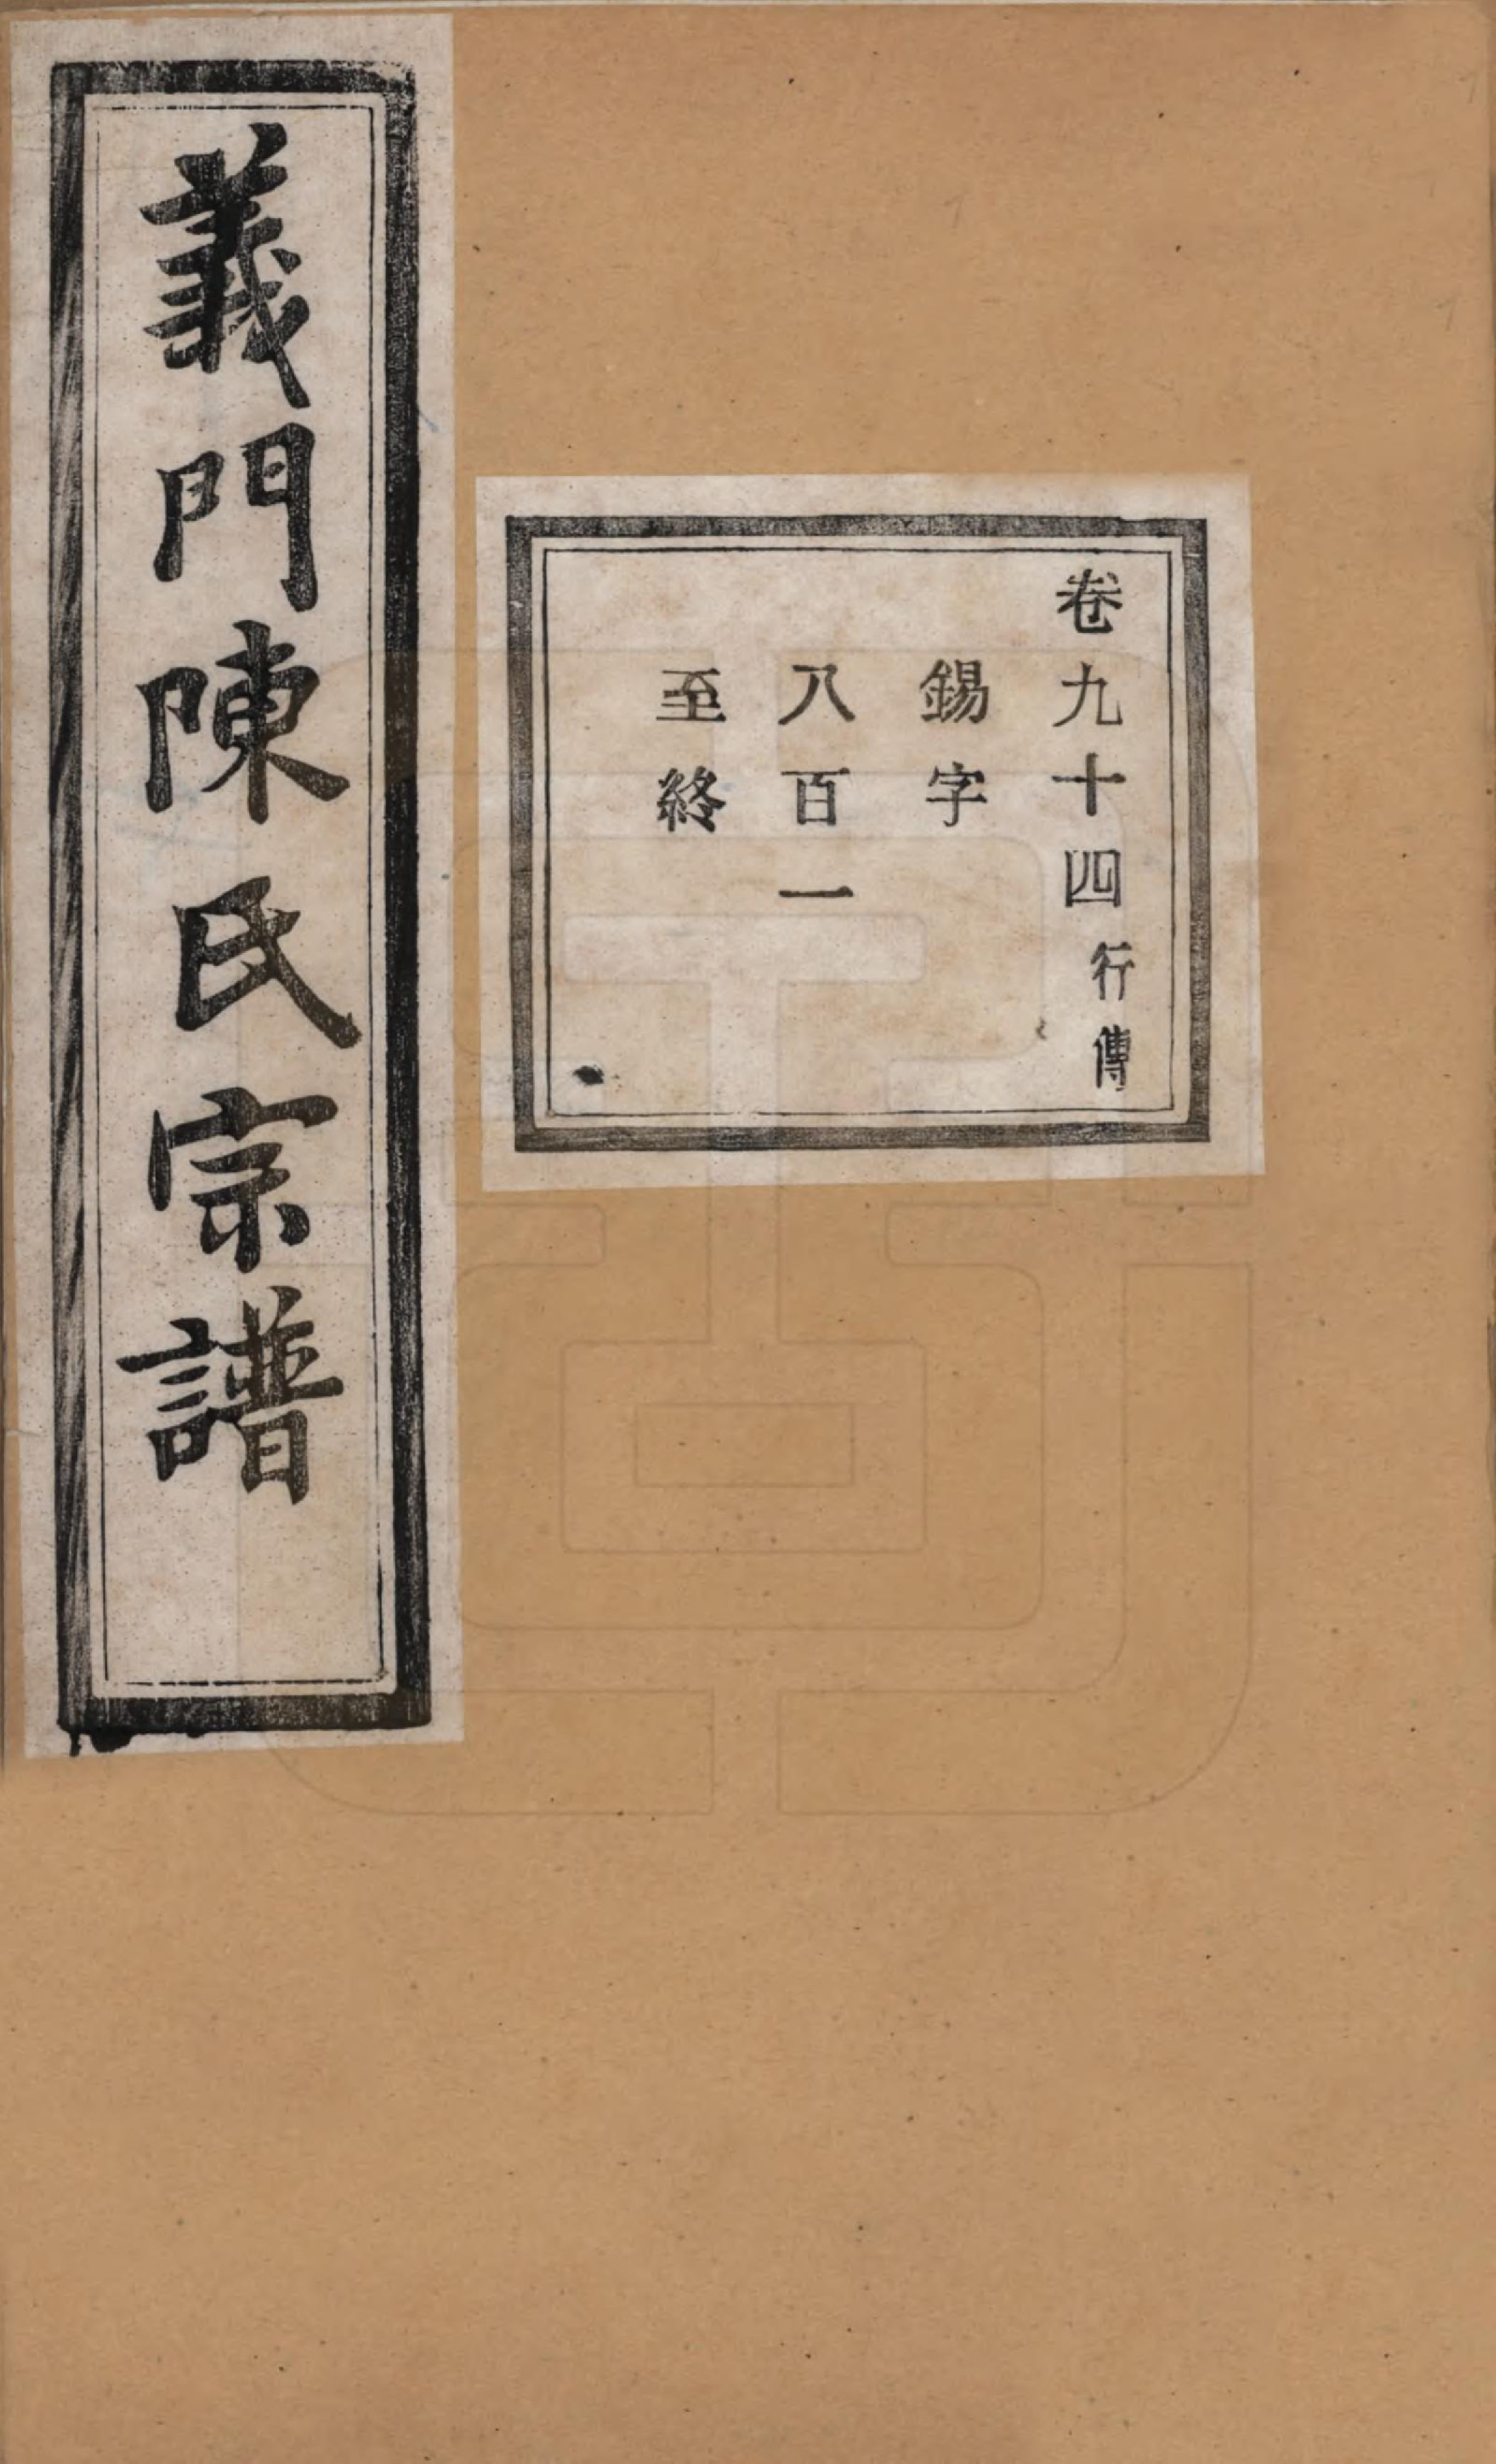 卷九十四行傳
錫字
八百一
至終
義門陳氏宗譜